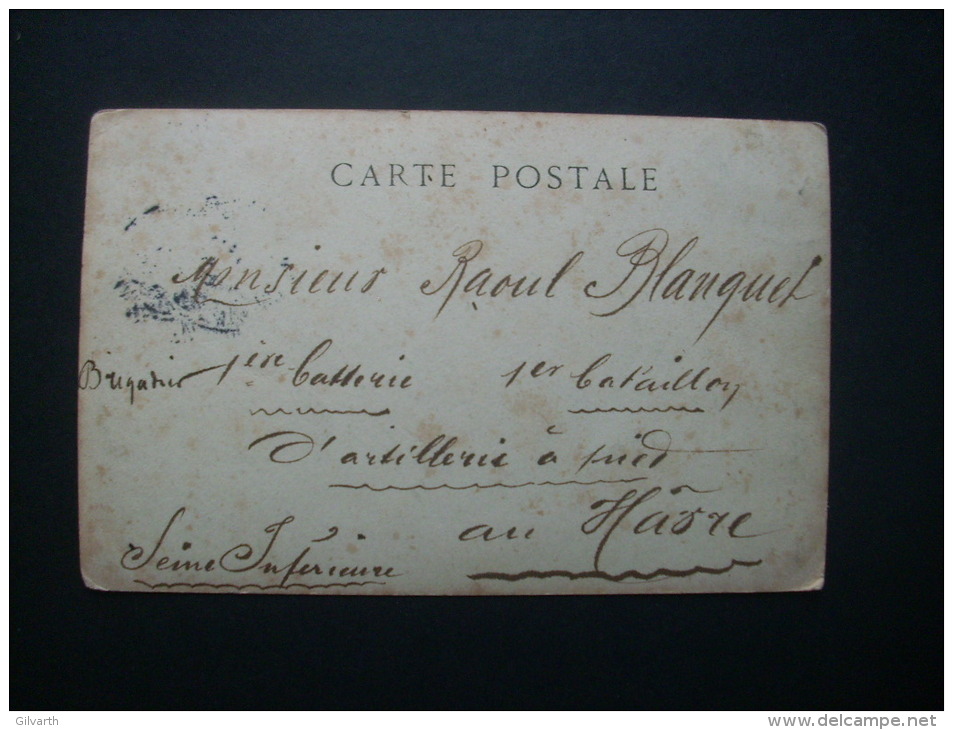 CARTE POSTALE
Monsieur Raoul Blanquet
Brigadier 1ère batterie 1er bataillon
d'artillerie à pied
au Hâvre
Seine Inférieure
Gilvarth
www.delcampe.net